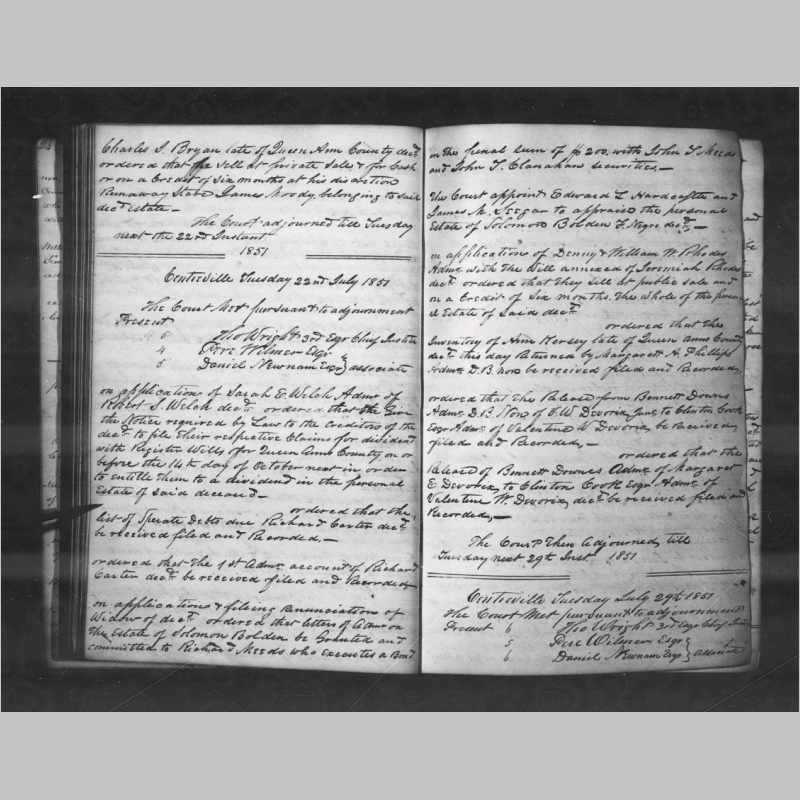 Charles S. Bryan late of Queen Ann County decd
ordered that he sell at private sale & for Cash
or on a Credit of Six months at his discretion
Runaway Slave James Moody, belonging to said
decd Estate —
The Court adjourned till Tuesday
next the 22nd Instant
1851
Centreville Tuesday 22nd July 1851
The Court Met pursuant to adjournment
Present
6 Tho Wright 3rd Esqr Chief Justice
4 Pere Wilmer Esqr
5 Daniel Newnam Esqr } associate
on application of Sarah E. Welch Admx of
Robert S. Welch decd ordered that She Give
the Notice required by Law to the Creditors of the
decd to file their respective Claims for dividend
with Register Wills for Queen Anns County on or
before the 14th day of October next in order
to entitle them to a dividend in the personal
Estate of Said deceased —
ordered that the
list of Sperate Debts due Richard Carter decd
be received filed and Recorded. —
ordered that the 1st Admr account of Richard
Carter decd be received filed and Recorded,
on application & fileing renunciation of
Widow of decd ordered that letters of admr on
the Estate of Solomon Bolden be Granted and
committed to Richard Meeds who executes a Bond
in the penal sum of $200. with John T. Meeds
and John T. Clanahan securities. —
The Court appoint Edward L Hardcastle and
James M. Keegan to appraise the personal
Estate of Solomon Bolden F. Negro decd —
on application of Denny & William W. Rhodes
Admr with the Will annexed of Jeremiah Rhodes
decd ordered that they Sell at public sale and
on a Credit of Six months. the whole of the person
al Estate of Said decd
ordered that the
Inventory of Ann Kersey late of Queen Anns County
decd this day Returned by Margaret A. Phillips
Admx D. B. Non be received filed and Recorded,
ordered that the Release from Bennett Downs
Admr D. B. Non of V. W. Devorix, Junr to Clinton Cook
Esqr Admr of Valentine W Devorix, be Received,
filed and Recorded, —
ordered that the
Release of Bennett Downes Admr of Margaret
E Devorix, to Clinton Cook Esqr Admr of
Valentine W. Devorix, decd be received filed and
Recorded, —
The Court then adjourned, till
Tuesday next 29th Inst 1851
Centreville Tuesday July 29th 1851
The Court Met pursuant to adjournment
Present 6 Tho Wright 3rd Esqr Chief
5 Pere Wilmer Esqr }
6 Daniel Newnam Esqr } associate